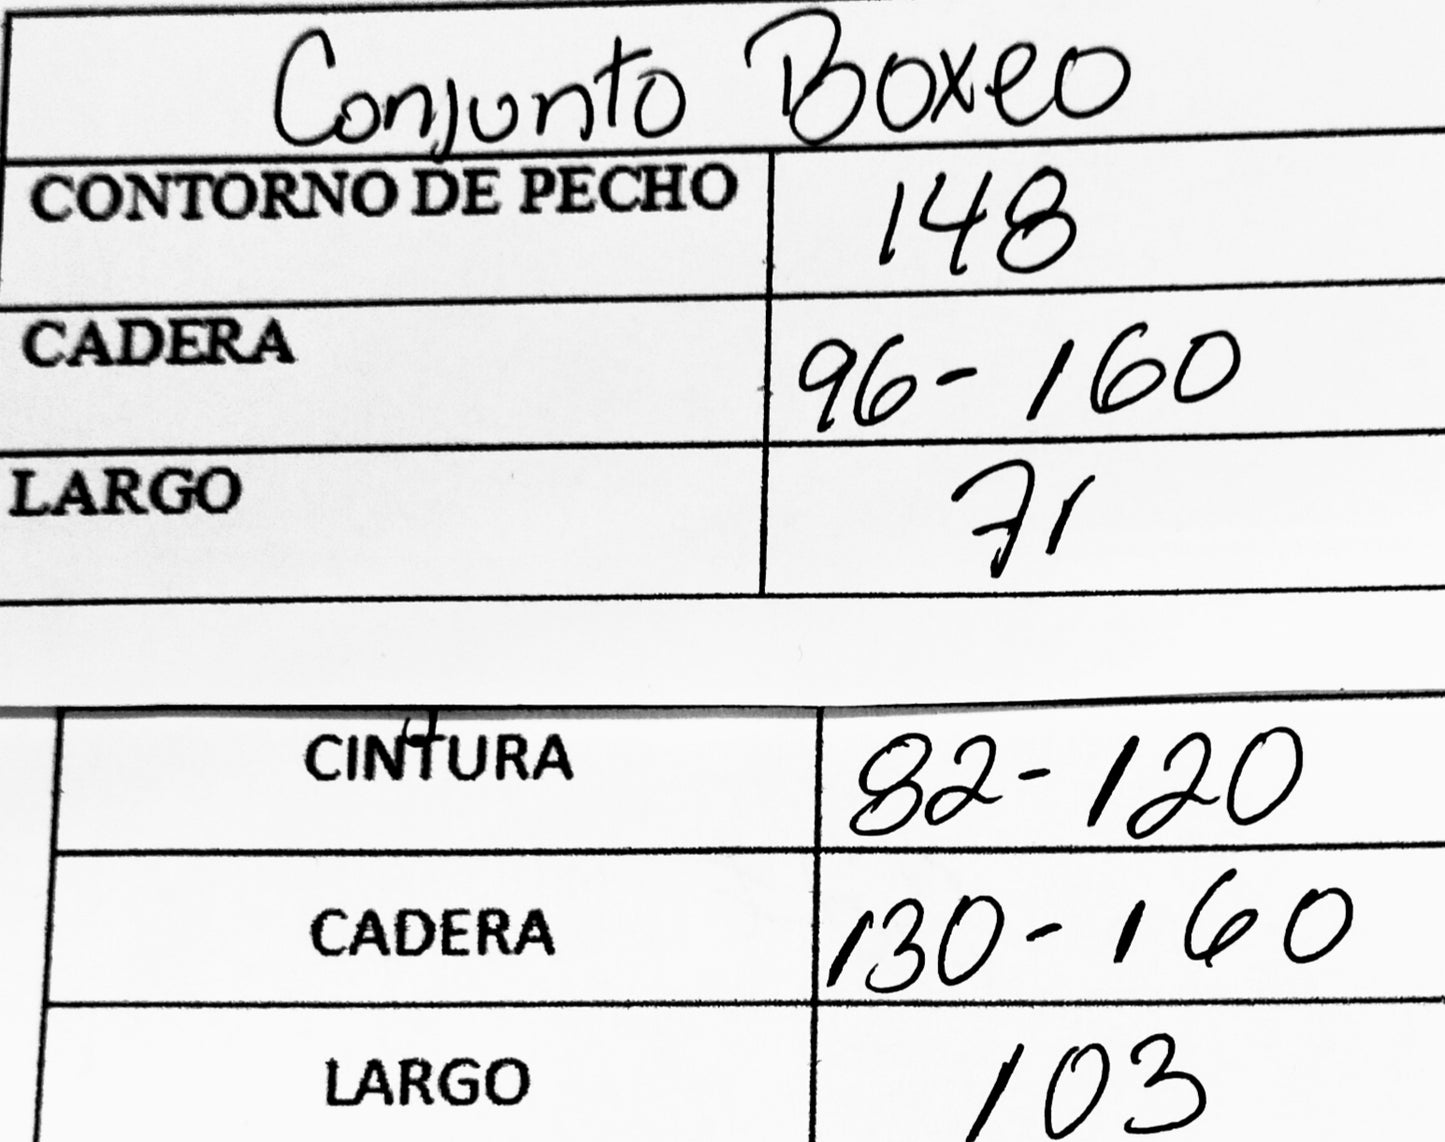 Conjunto Boxeo
CONTORNO DE PECHO 148
CADERA 96-160
LARGO 71
CINTURA 82-120
CADERA 130-160
LARGO 103